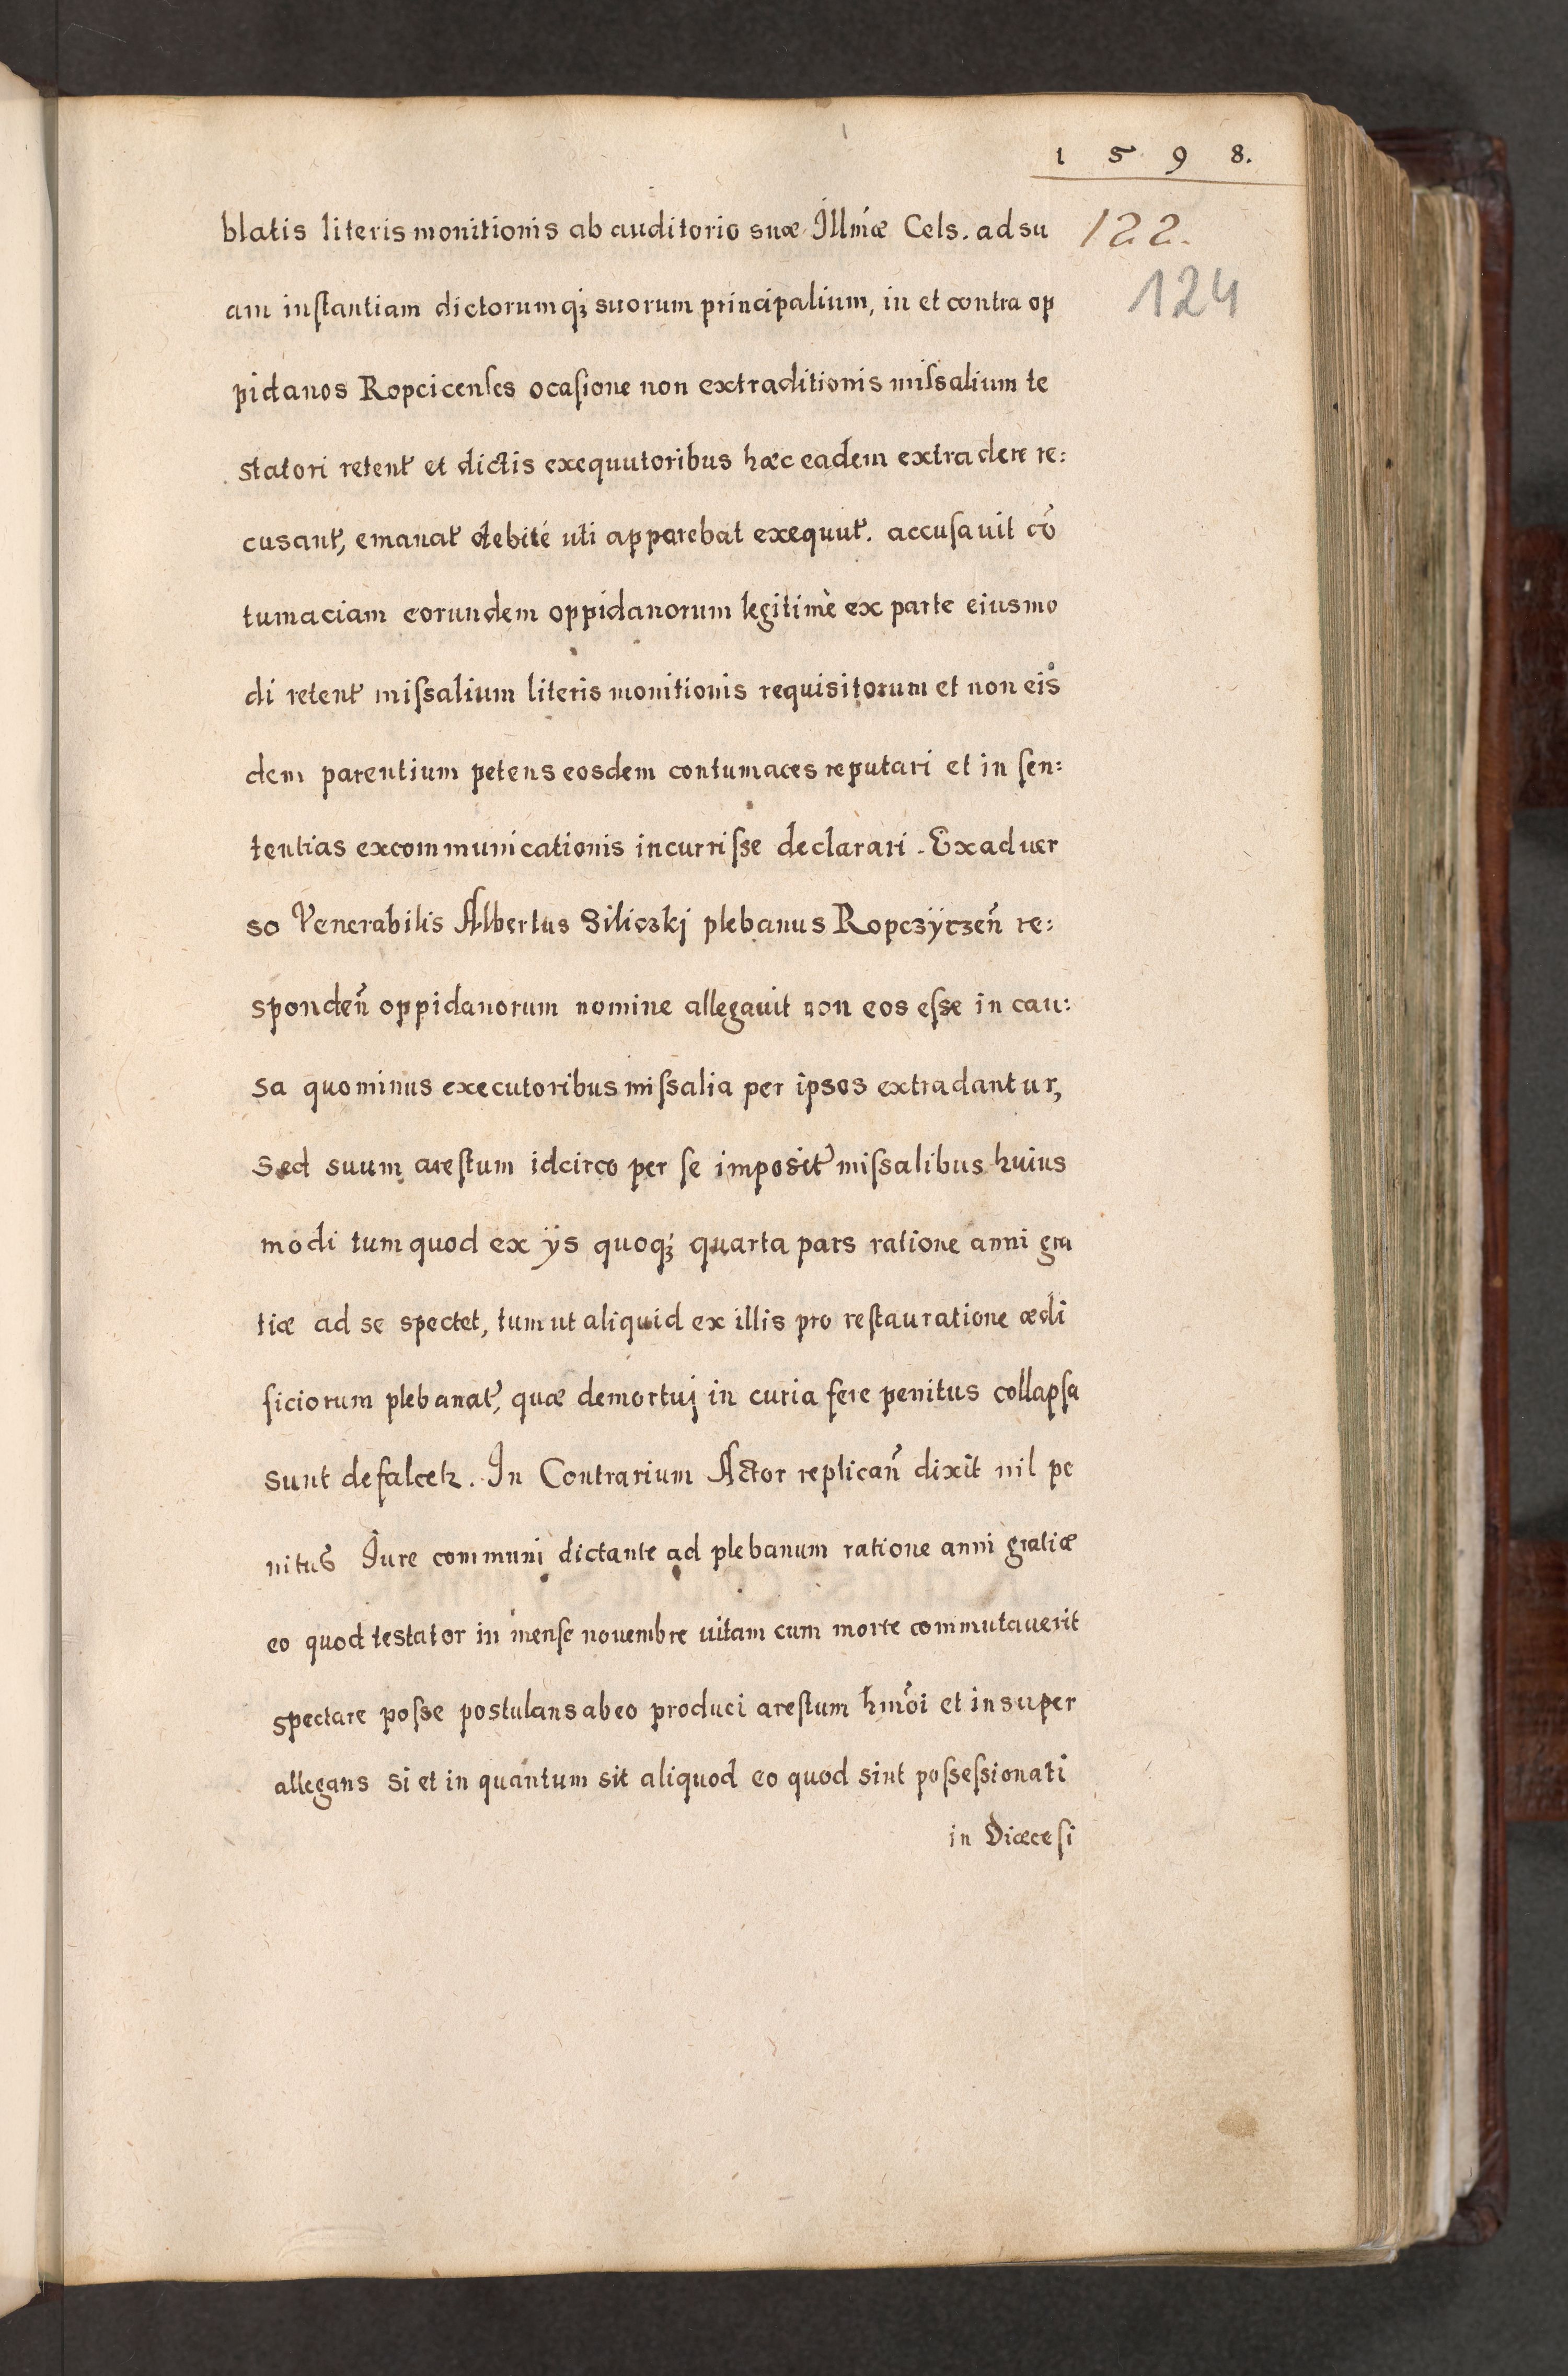 1 5 9 8.
122.
124
blatis literis monitionis ab auditorio suæ Illmæ Cels. ad su
am instantiam dictorumq; suorum principalium, in et contra op
pidanos Ropcicenses ocasione non extraditionis missalium te
statori retent̃ et dictis exequutoribus hæc eadem extradere re:
cusant̃, emanat̃ debitè uti apparebat exequut̃. accusavit cõ
tumaciam eorundem oppidanorum legitimè ex parte eiusmo
di retent̃ missalium literis monitionis requisitorum et non eis
dem parentium petens eosdem contumaces reputari et in sen:
tentias excommunicationis incurrisse declarari. Exaduer
so Venerabilis Albertus Siliczkj plebanus Ropczÿczeñ re:
spondeñ oppidanorum nomine allegauit non eos esse in cau:
sa quominus executoribus missalia per ipsos extradantur,
sed suum arestum idcirco per se imposit̃ missalibus huius
modi tum quod ex ÿs quoq; quarta pars ratione anni gra
tiæ ad se spectet, tum ut aliquid ex illis pro restauratione ædi
ficiorum plebanat̃, quæ demortuj in curia fere penitus collapsa
sunt defalcetr. In Contrarium Actor replicañ dixit nil pe
nitus Jure communi dictante ad plebanum ratione anni gratiæ
eo quod testator in mense nouembre uitam cum morte commutauerit
spectare posse postulans ab eo produci arestum hmõi et insuper
allegans si et in quantum sit aliquod eo quod sint possessionati
in Diæcesi